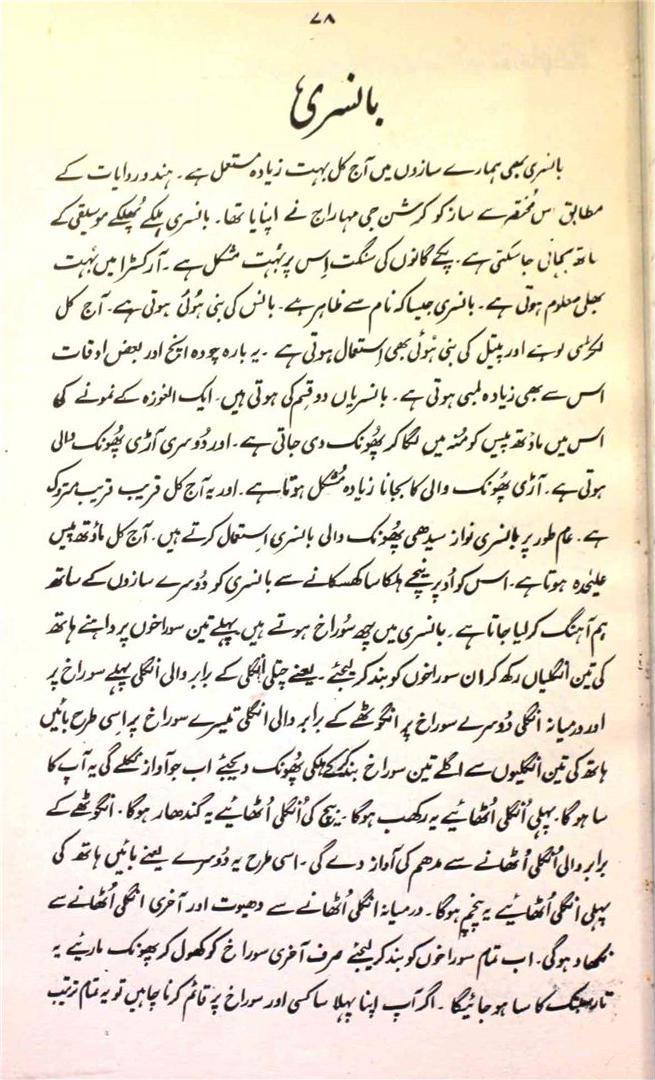 ۷۸
بانسری
بانسری بھی ہمارے سازوں میں آج کل بہت زیادہ مستعمل ہے۔ ہندو روایات کے
مطابق اس مختصر سے ساز کو کرشن جی مہاراج نے اپنایا تھا۔ بانسری ہلکے پھلکے موسیقی کے
ساتھ بجائی جاسکتی ہے۔ پکے گانوں کی سنگت اِس پر بہت مشکل ہے۔ آرکسٹرا میں بہت
بھلی معلوم ہوتی ہے۔ بانسری جیسا کہ نام سے ظاہر ہے۔ بانس کی بنی ہوئی ہوتی ہے۔ آج کل
لکڑی لوہے اور پیتل کی بنی ہوئی بھی اِستعمال ہوتی ہے۔ یہ بارہ چودہ اینچ اور بعض اوقات
اس سے بھی زیادہ لمبی ہوتی ہے۔ بانسریاں دو قسم کی ہوتی ہیں۔ ایک الغوزہ کے نمونے کی
اس میں ماؤتھ پیس کو مُنہ میں لگا کر پھونک دی جاتی ہے۔ اور دُوسری آڑی پھُونک والی
ہوتی ہے۔ آڑی پھُونک والی کا بجانا زیادہ مُشکل ہوتا ہے۔ اور یہ آج کل قریب قریب متروک
ہے۔ عام طور پر بانسری نواز سیدھی پھُونک والی بانسری اِستعمال کرتے ہیں۔ آج کل ماؤتھ پیس
علیٰحدہ ہوتا ہے۔ اس کو اُوپر نیچے ہلکا سا کھسکانے سے بانسری کو دُوسرے سازوں کے ساتھ
ہم آہنگ کر لیا جاتا ہے۔ بانسری میں چھ سُوراخ ہوتے ہیں پہلے تین سوراخوں پر داہنے ہاتھ
کی تین انگلیاں رکھ کر ان سوراخوں کو بند کر لیجئے۔ یعنے چنلی اُنگلی کے برابر والی انگلی پہلے سوراخ پر
اور درمیانہ انگلی دُوسرے سوراخ پر انگوٹھے کے برابر والی انگلی تیسرے سوراخ پر اسی طرح بائیں
ہاتھ کی تین انگلیوں سے اگلے تین سوراخ بند کرکے ہلکی پھُونک دیجئے اب جو آواز نکلے گی یہ آپ کا
سا ہوگا۔ پہلی اُنگلی اُٹھائیے یہ رکھب ہوگا۔ بیچ کی اُنگلی اُٹھائیے یہ گندھار ہوگا۔ انگوٹھے کے
برابر والی اُنگلی اُٹھانے سے مدھم کی آواز دے گی۔ اسی طرح یہ دُوسرے یعنے بائیں ہاتھ کی
پہلی انگلی اُٹھائیے یہ پنچم ہوگا۔ درمیانہ انگلی اُٹھانے سے دھیوت اور آخری انگلی اُٹھانے سے
نکھاد ہوگی۔ اب تمام سوراخوں کو بند کر لیجئے صرف آخری سوراخ کو کھول کر پھونک ماریئے یہ
تار سپتک کا سا ہو جائیگا۔ اگر آپ اپنا پہلا سا کسی اور سوراخ پر قائم کرنا چاہیں تو یہ تمام ترتیب